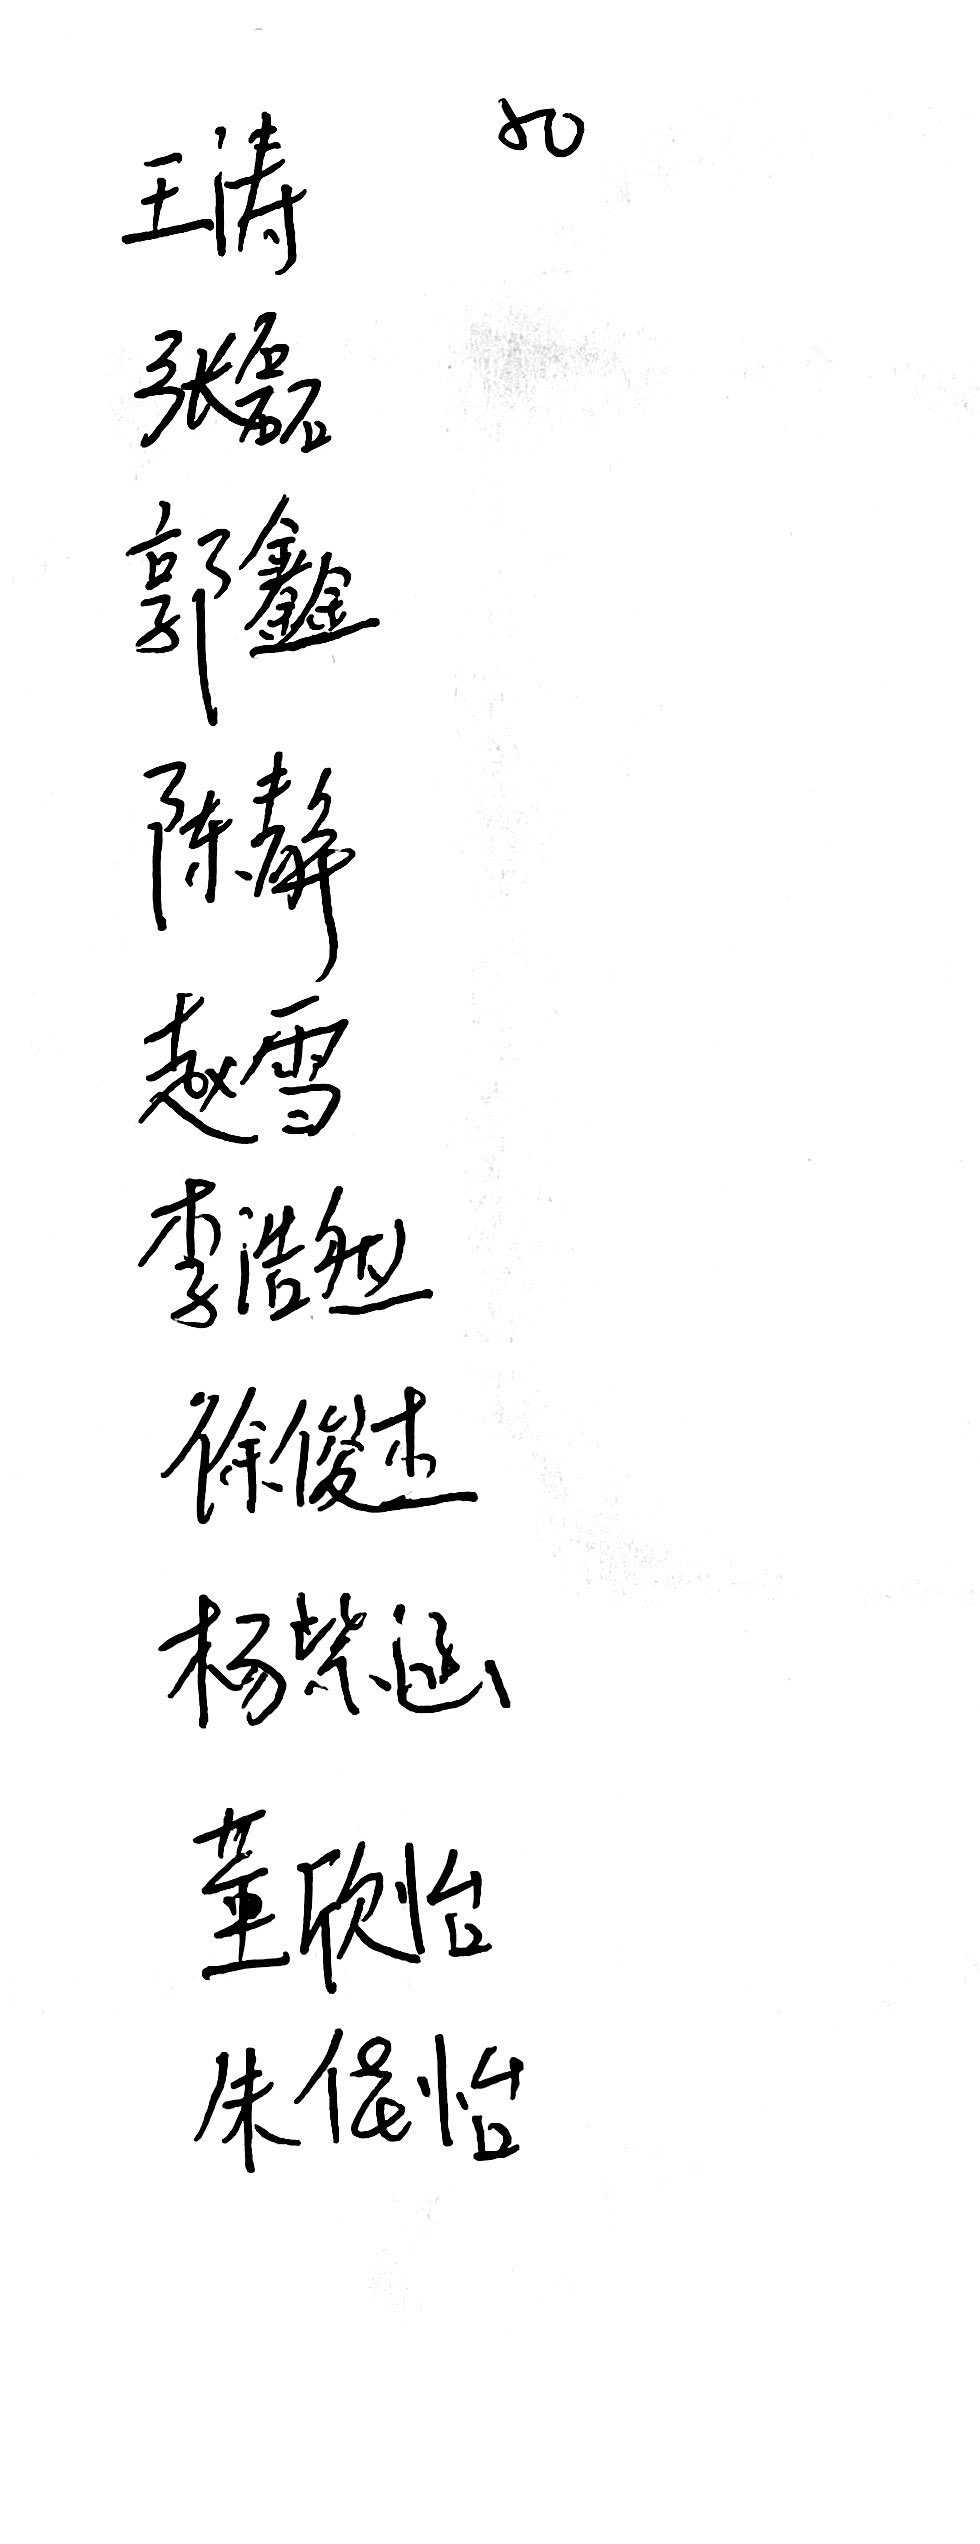 王涛
张磊
郭鑫
陈静
赵雪
李浩然
徐俊杰
杨紫涵
董欣怡
朱佩怡